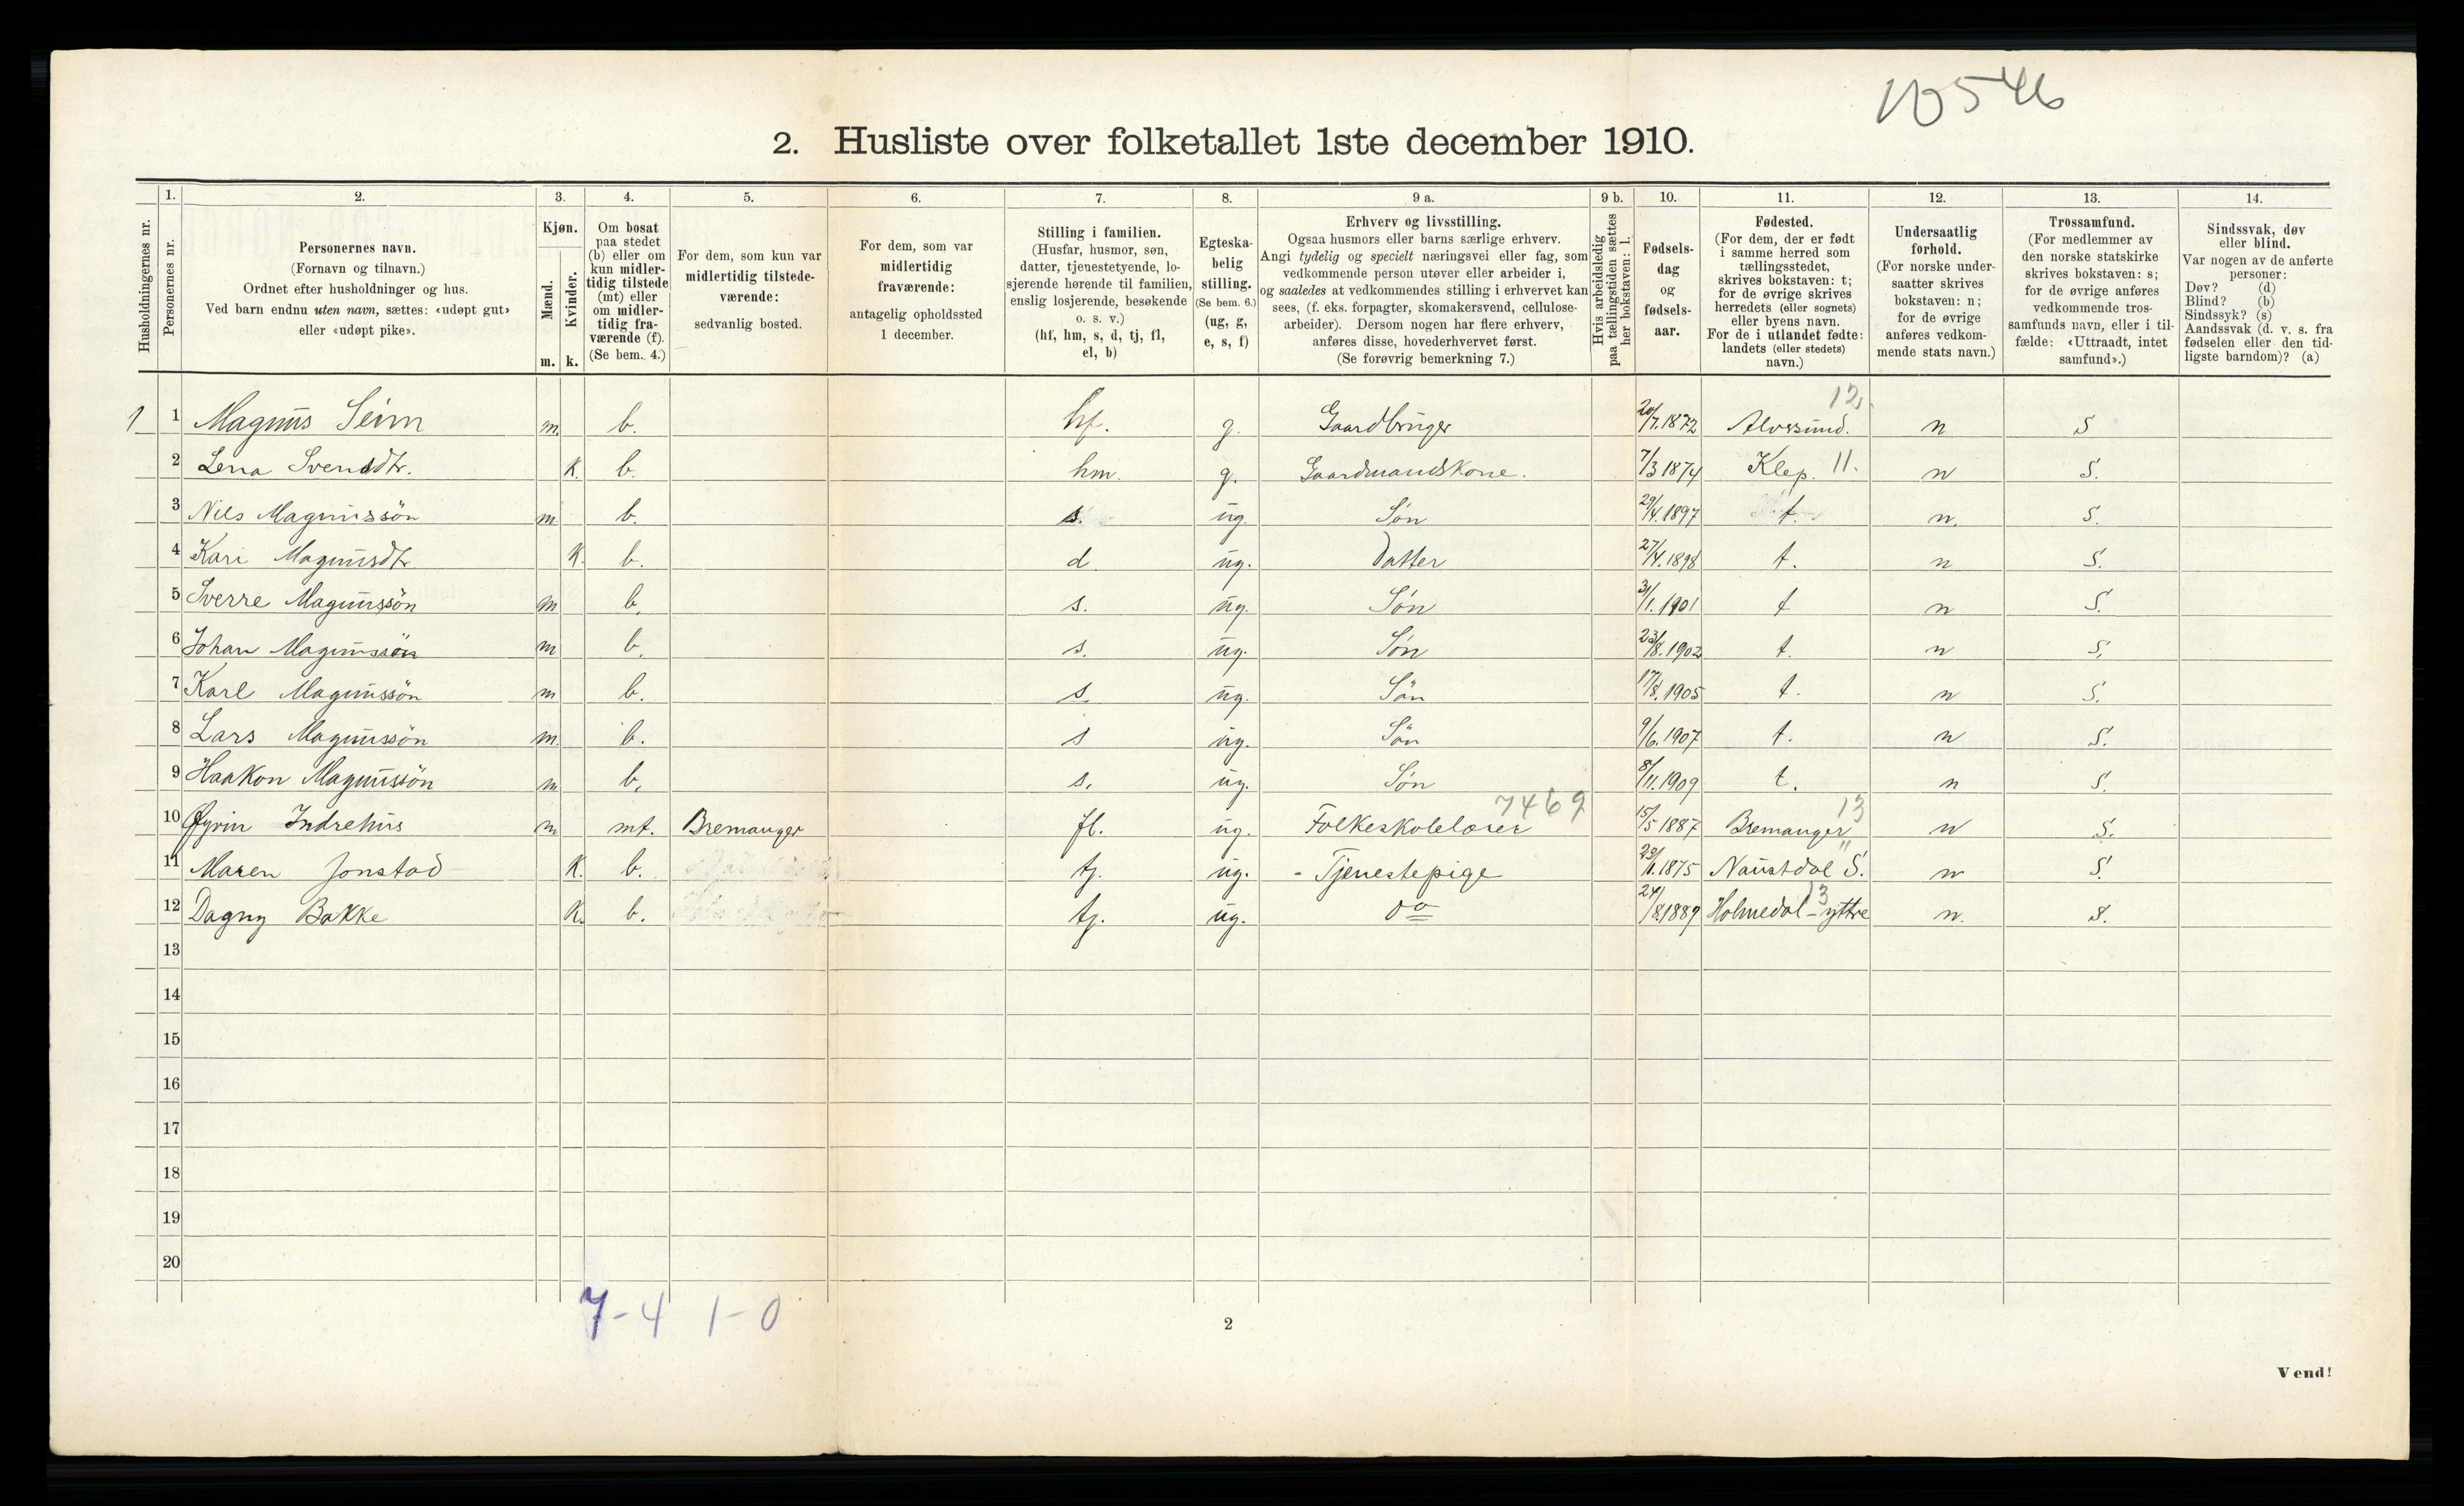 10546
2. Husliste over folketallet 1ste december 1910.
Husholdningernes nr.
1.
Personernes nr.
2.
Personernes navn.
(Fornavn og tilnavn.)
Ordnet efter husholdninger og hus.
Ved barn endnu uten navn, sættes: «udøpt gut»
eller «udøpt pike».
3.
Kjøn.
Mænd.
Kvinder.
m. k.
4.
Om bosat
paa stedet
(b) eller om
kun midler-
tidig tilstede
(mt) eller
om midler-
tidig fra-
værende (f).
(Se bem. 4.)
5.
For dem, som kun var
midlertidig tilstede-
værende:
sedvanlig bosted.
6.
For dem, som var
midlertidig
fraværende:
antagelig opholdssted
1 december.
7.
Stilling i familien.
(Husfar, husmor, søn,
datter, tjenestetyende, lo-
sjerende hørende til familien,
enslig losjerende, besøkende
o. s. v.)
(hf, hm, s, d, tj, fl,
el, b)
8.
Egteska-
belig
stilling.
(Se bem. 6.)
(ug, g,
e, s, f)
9 a.
Erhverv og livsstilling.
Ogsaa husmors eller barns særlige erhverv.
Angi tydelig og specielt næringsvei eller fag, som
vedkommende person utøver eller arbeider i,
og saaledes at vedkommendes stilling i erhvervet kan
sees, (f. eks. forpagter, skomakersvend, cellulose-
arbeider). Dersom nogen har flere erhverv,
anføres disse, hovederhvervet først.
(Se forøvrig bemerkning 7.)
9 b.
Hvis arbeidsledig
paa tællingstiden sættes
her bokstaven: l.
10.
Fødsels-
dag
og
fødsels-
aar.
11.
Fødested.
(For dem, der er født
i samme herred som
tællingsstedet,
skrives bokstaven: t;
for de øvrige skrives
herredets (eller sognets)
eller byens navn.
For de i utlandet fødte:
landets (eller stedets)
navn.)
12.
Undersaatlig
forhold.
(For norske under-
saatter skrives
bokstaven: n;
for de øvrige
anføres vedkom-
mende stats navn.)
13.
Trossamfund.
(For medlemmer av
den norske statskirke
skrives bokstaven: s;
for de øvrige anføres
vedkommende tros-
samfunds navn, eller i til-
fælde: «Uttraadt, intet
samfund».)
14.
Sindssvak, døv
eller blind.
Var nogen av de anførte
personer:
Døv? (d)
Blind? (b)
Sindssyk? (s)
Aandssvak (d. v. s. fra
fødselen eller den tid-
ligste barndom)? (a)
1 1 Magnus Seim m. b. hf. g. Gaardbruger 20/7.1872 Alversund. 12. n S
2 Lena Svensdtr. K. b. hm. g. Gaardmandskone. 7/3 1874 Klep. 11. n S.
3 Nils Magnussön m b. s. ug. Søn 29/4.1897 t. n. S.
4 Kari Magnusdtr K. b. d ug. Datter 27/4.1898 t. n S.
5 Sverre Magnussön m b. s. ug. Søn 31/1.1901 t n S.
6 Johan Magnussön m b. s. ug. Søn 23/8.1902 t. n S.
7 Karl Magnussön m b. s. ug. Sön 17/8.1905 t. n S.
8 Lars Magnussön m. b. s ug. Sön 9/6.1907 t. n S.
9 Haakon Magnussön m b. s. ug. Søn 8/11.1909 t. n S.
10 Øyvin Indrehus m mt. Bremanger fl. ug. Folkeskolelærer 7469 15/5 1887 Bremanger 13 n S.
11 Maren Jonstad K. b. tj. ug. - Tjenestepige 1875 Naustdal S. " n S.
12 Dagny Bakke K. b. tj. ug. do 24/8.1889 Holmedal - yttre 13 n. S.
13
14
15
16
17
18
19
20
7-4 1-0
2
Vend!